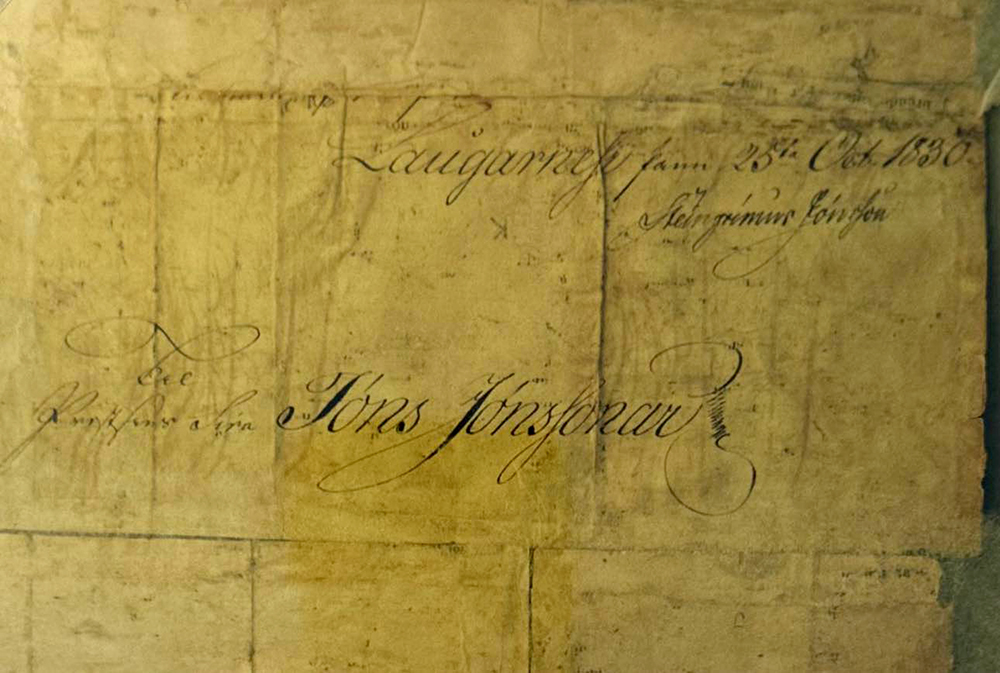 Laugarness þann 25ta Oct. 1830.
Steingrímur Jónsson
Til
Prestsins Síra Jóns Jónssonar